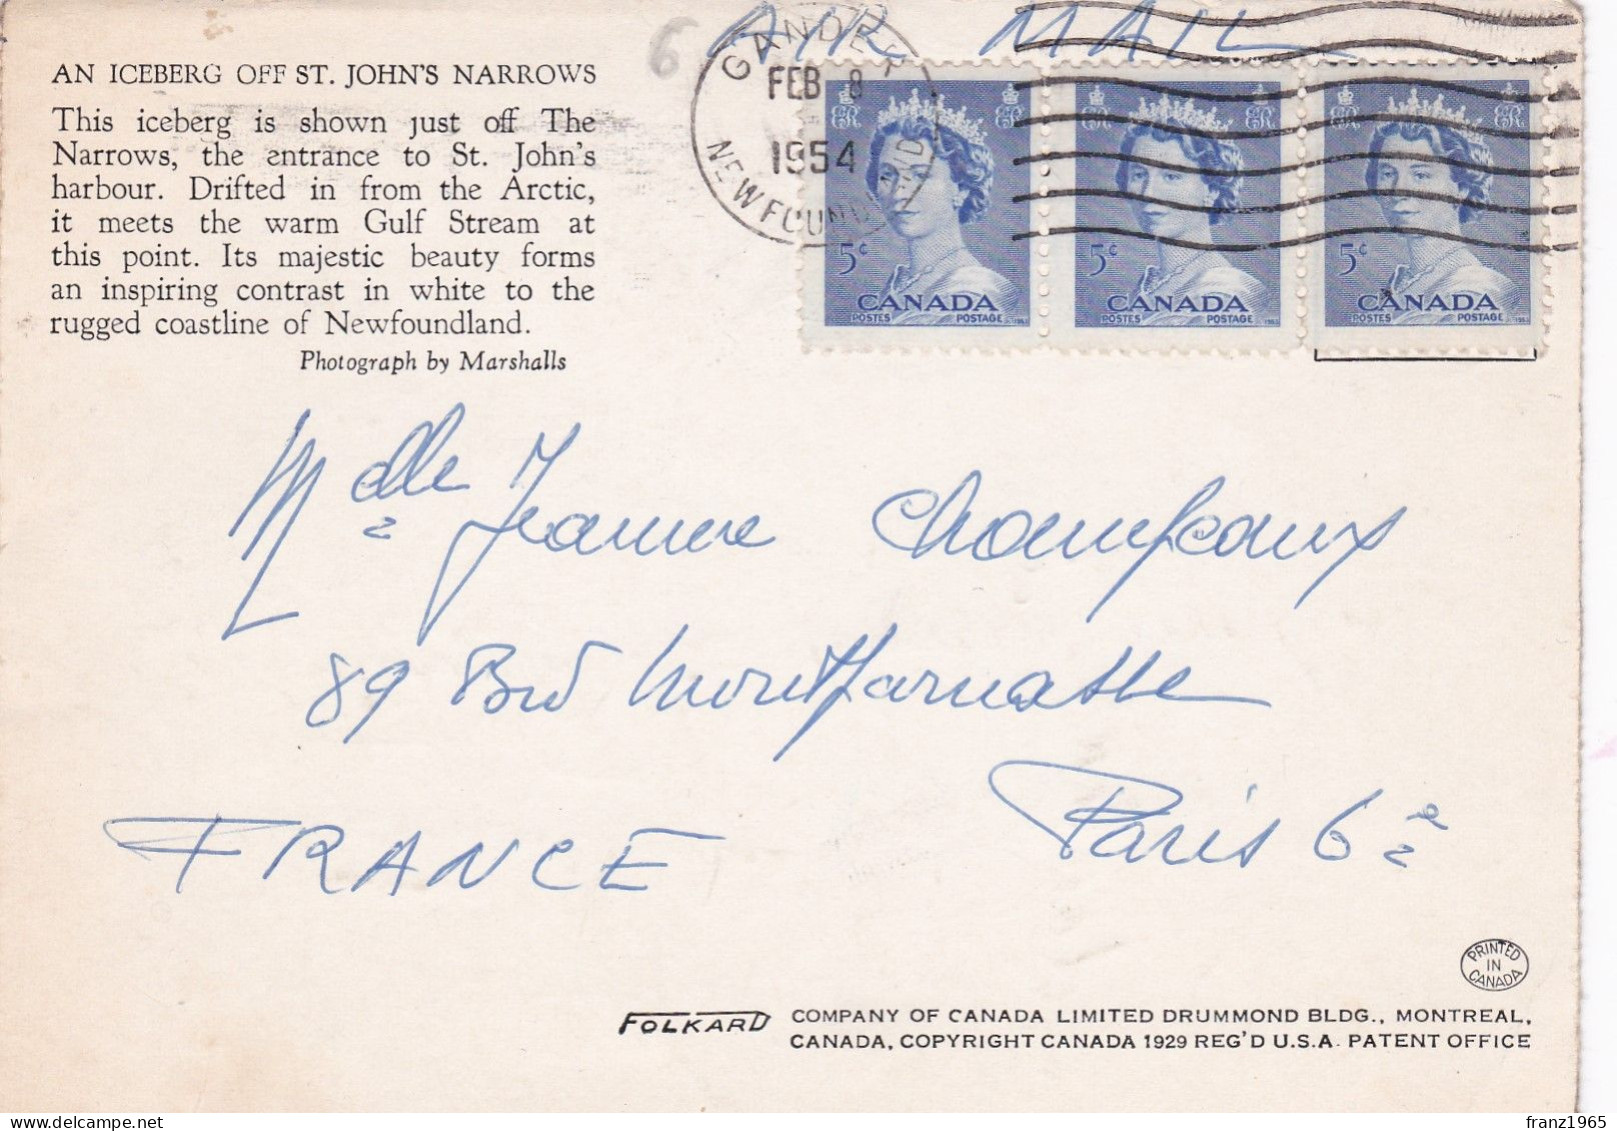 AIR MAIL
6
GANDER
FEB 8
1954
NEWFOUNDLAND
AN ICEBERG OFF ST. JOHN'S NARROWS
This iceberg is shown just off The
Narrows, the entrance to St. John's
harbour. Drifted in from the Arctic,
it meets the warm Gulf Stream at
this point. Its majestic beauty forms
an inspiring contrast in white to the
rugged coastline of Newfoundland.
Photograph by Marshalls
5¢ 5¢ 5¢
CANADA CANADA CANADA
POSTES POSTAGE POSTES POSTAGE POSTES POSTAGE
Mdlle Jeanne
89 Bvd Montparnasse
Paris 6e
FRANCE
PRINTED
IN
CANADA
FOLKARD COMPANY OF CANADA LIMITED DRUMMOND BLDG., MONTREAL,
CANADA, COPYRIGHT CANADA 1929 REG'D U.S.A. PATENT OFFICE
franz1965